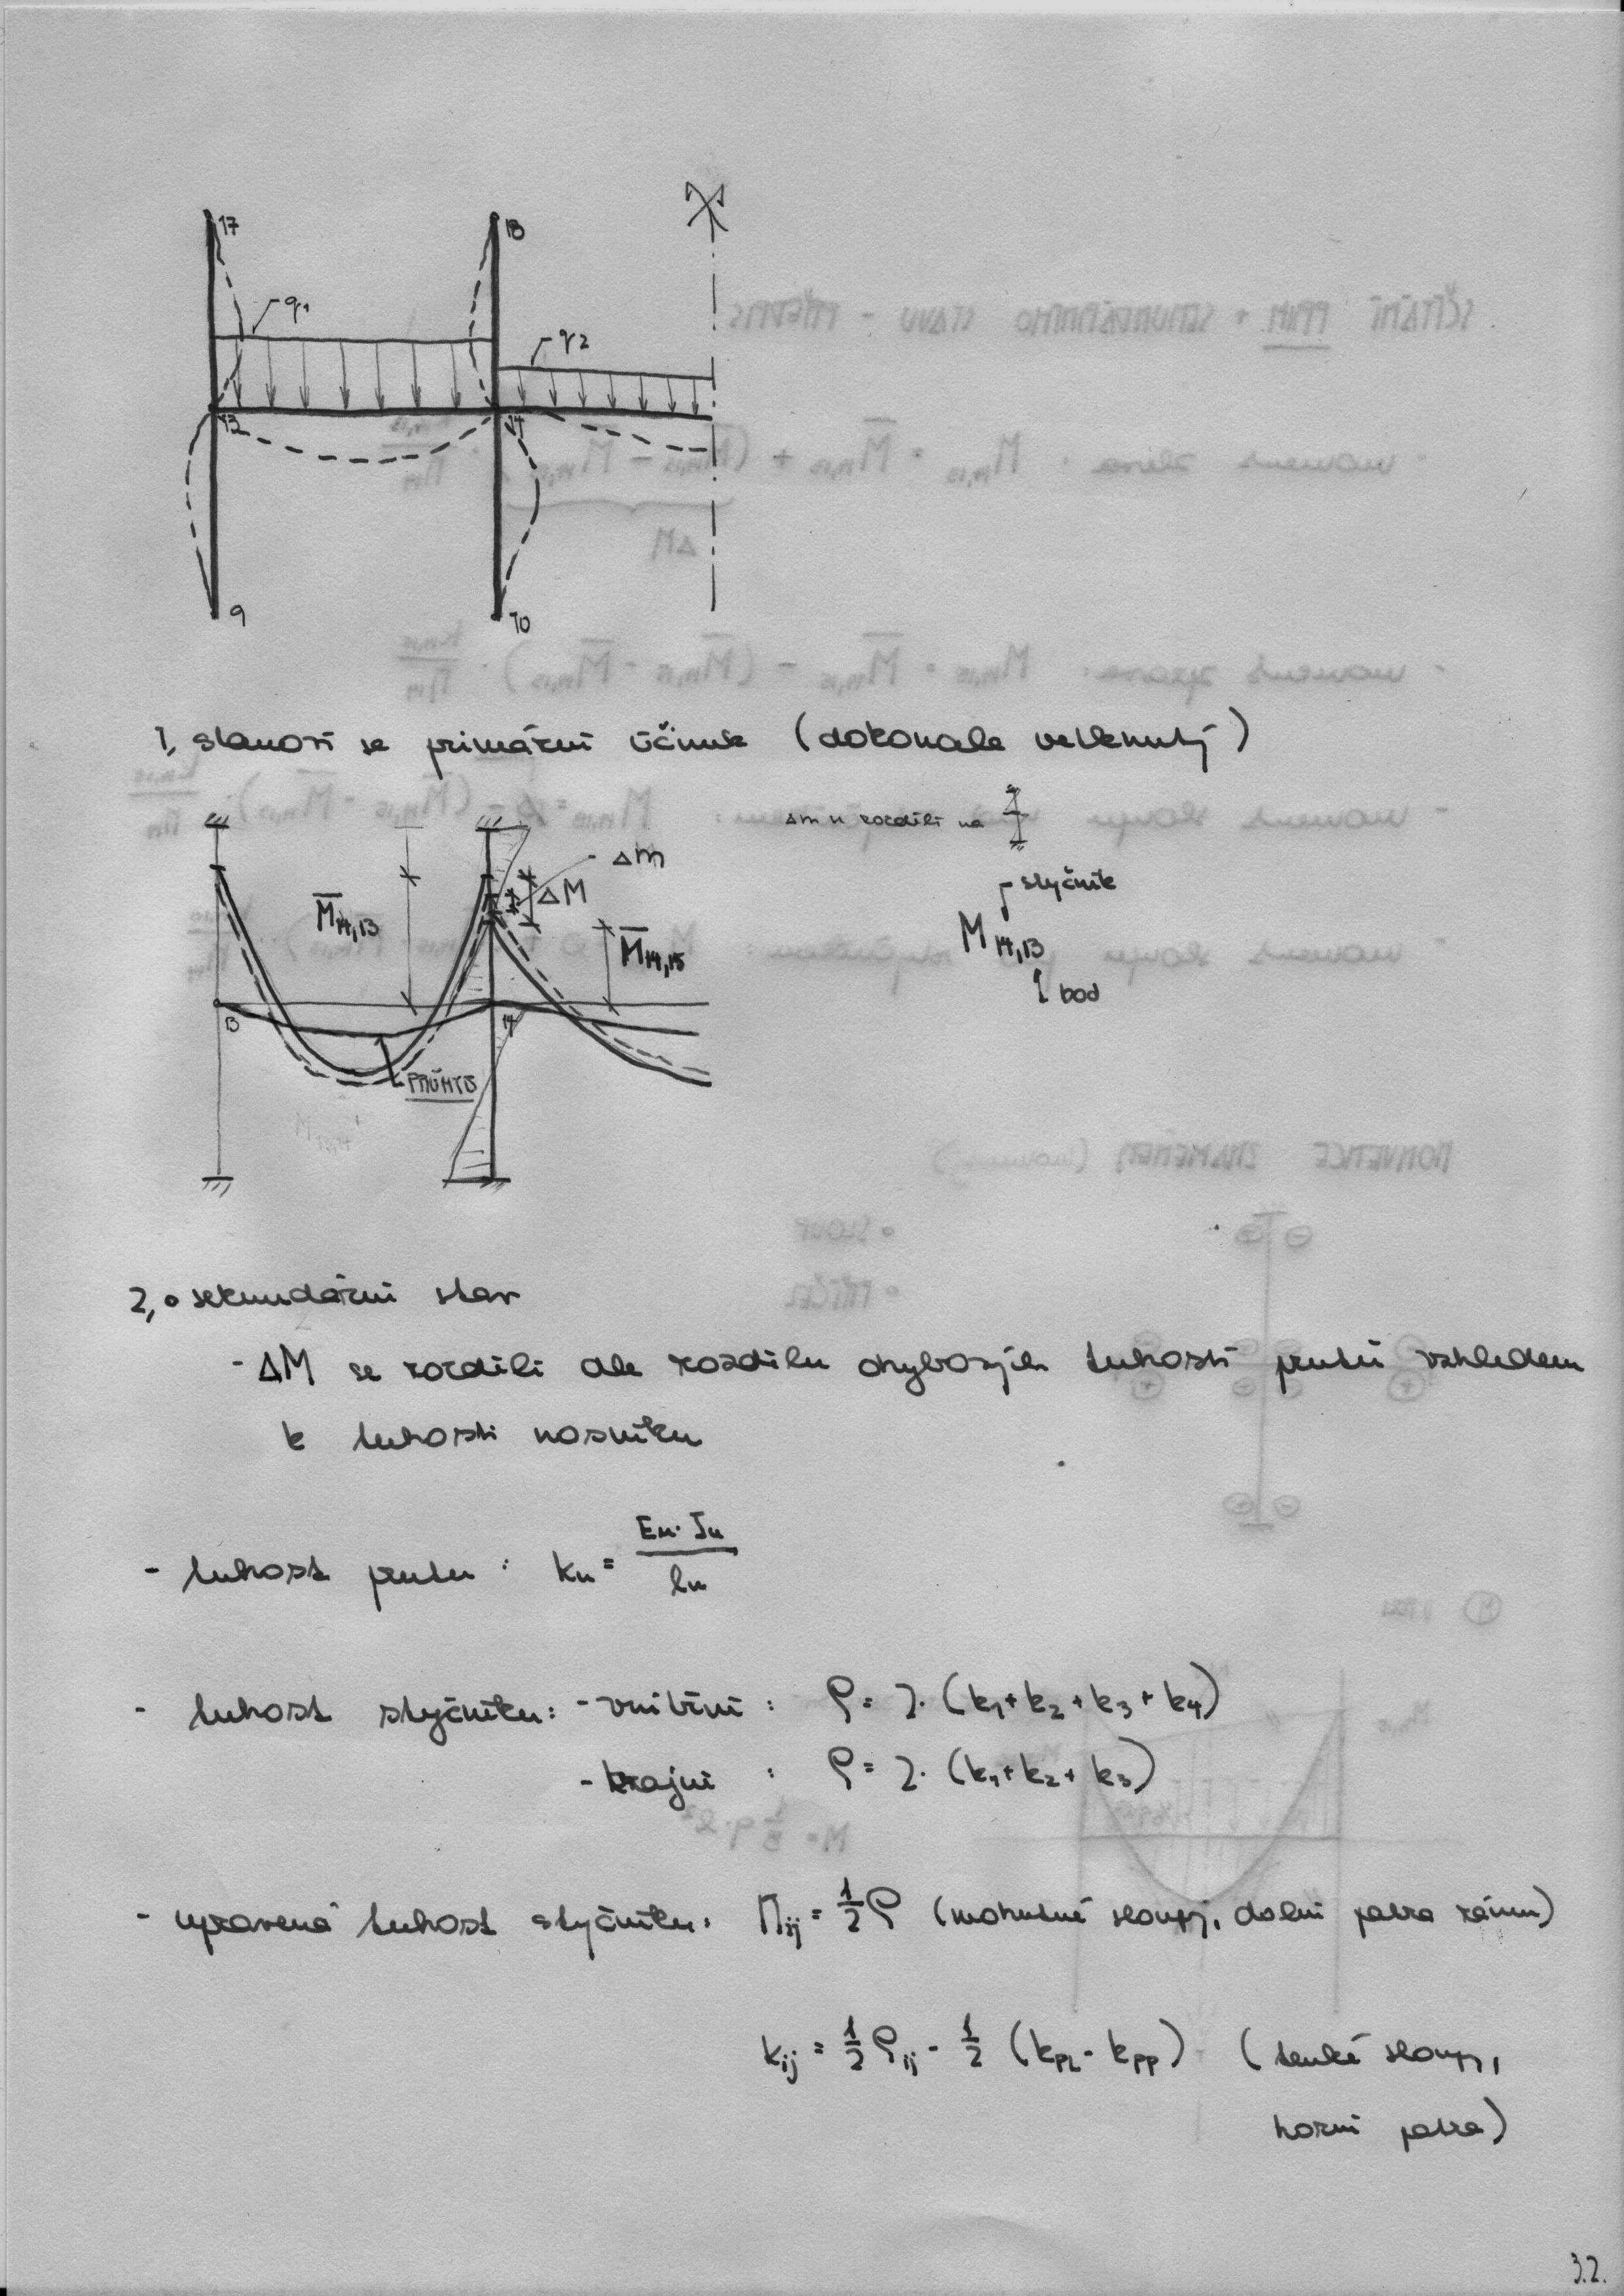 17
18
q1
q2
13
14
9
10
1, stanoví se primární účinek (dokonale vetknutý)
Δm u rozdělí na
Δm
ΔM
M̅14,13
M̅14,15
styčník
M14,13
bod
13
14
PRŮHYB
2, • sekundární stav
- ΔM se rozdělí dle rozdílu ohybových tuhostí prutů vzhledem
k tuhosti nosníku
- tuhost prutu : kn = En·In / ln
- tuhost styčníku: - vnitřní : ρ = 2·(k1+k2+k3+k4)
- krajní : ρ = 2·(k1+k2+k3)
- upravená tuhost styčníku: Πij = 1/2 ρ (mohutné sloupy, dolní patra rámu)
kij = 1/2 ρij - 1/2 (kpl - kpp) (tenké sloupy,
horní patra)
3.2.